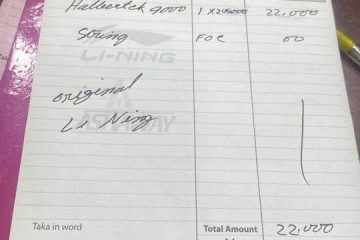 Halbertek 9000 1 X 22000 22,000
String FOC 00
LI-NING
original
Li Ning
YAWATA
Taka in word Total Amount 22,000